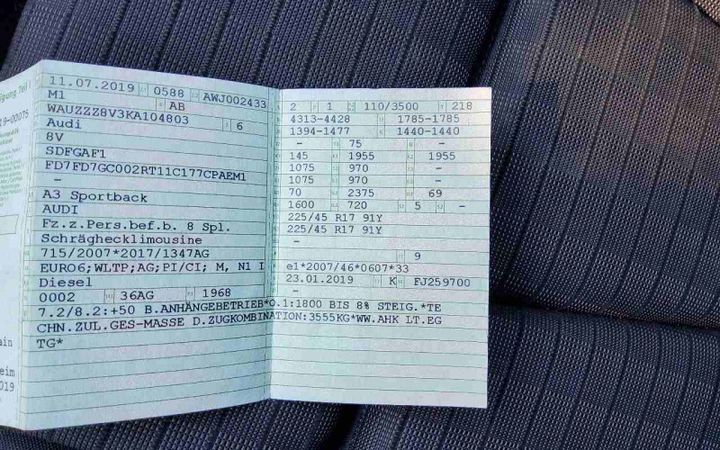 11.07.2019 0588 AWJ002433
M1 AB
WAUZZZ8V3KA104803 6
Audi
8V
SDFGAF1
FD7FD7GC002RT11C177CPAEM1
–
A3 Sportback
AUDI
Fz.z.Pers.bef.b. 8 Spl.
Schräghecklimousine
715/2007*2017/1347AG
EURO6;WLTP;AG;PI/CI; M, N1 I
Diesel
0002 36AG 1968
2 1 110/3500 218
4313-4428 1785-1785
1394-1477 1440-1440
– 75 –
145 1955 1955
1075 970 –
1075 970 –
70 2375 69
1600 720 5 –
225/45 R17 91Y
225/45 R17 91Y
–
9
e1*2007/46*0607*33
23.01.2019 K FJ259700
–
7.2/8.2:+50 B.ANHÄNGEBETRIEB*O.1:1800 BIS 8% STEIG.*TE
CHN.ZUL.GES-MASSE D.ZUGKOMBINATION:3555KG*WW.AHK LT.EG
TG*